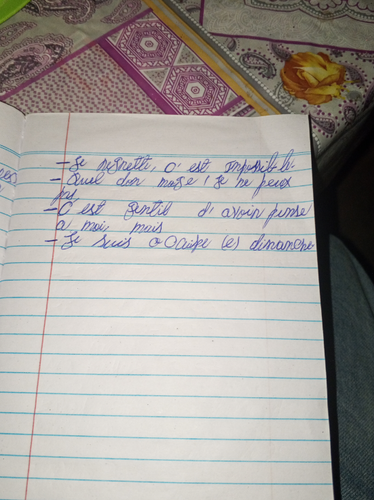 - Je regrette, c'est impossible
- Quel dommage! Je ne peux
pas
- C'est gentil d'avoir pensé
a moi, mais
- Je suis occupe (e) dimanche